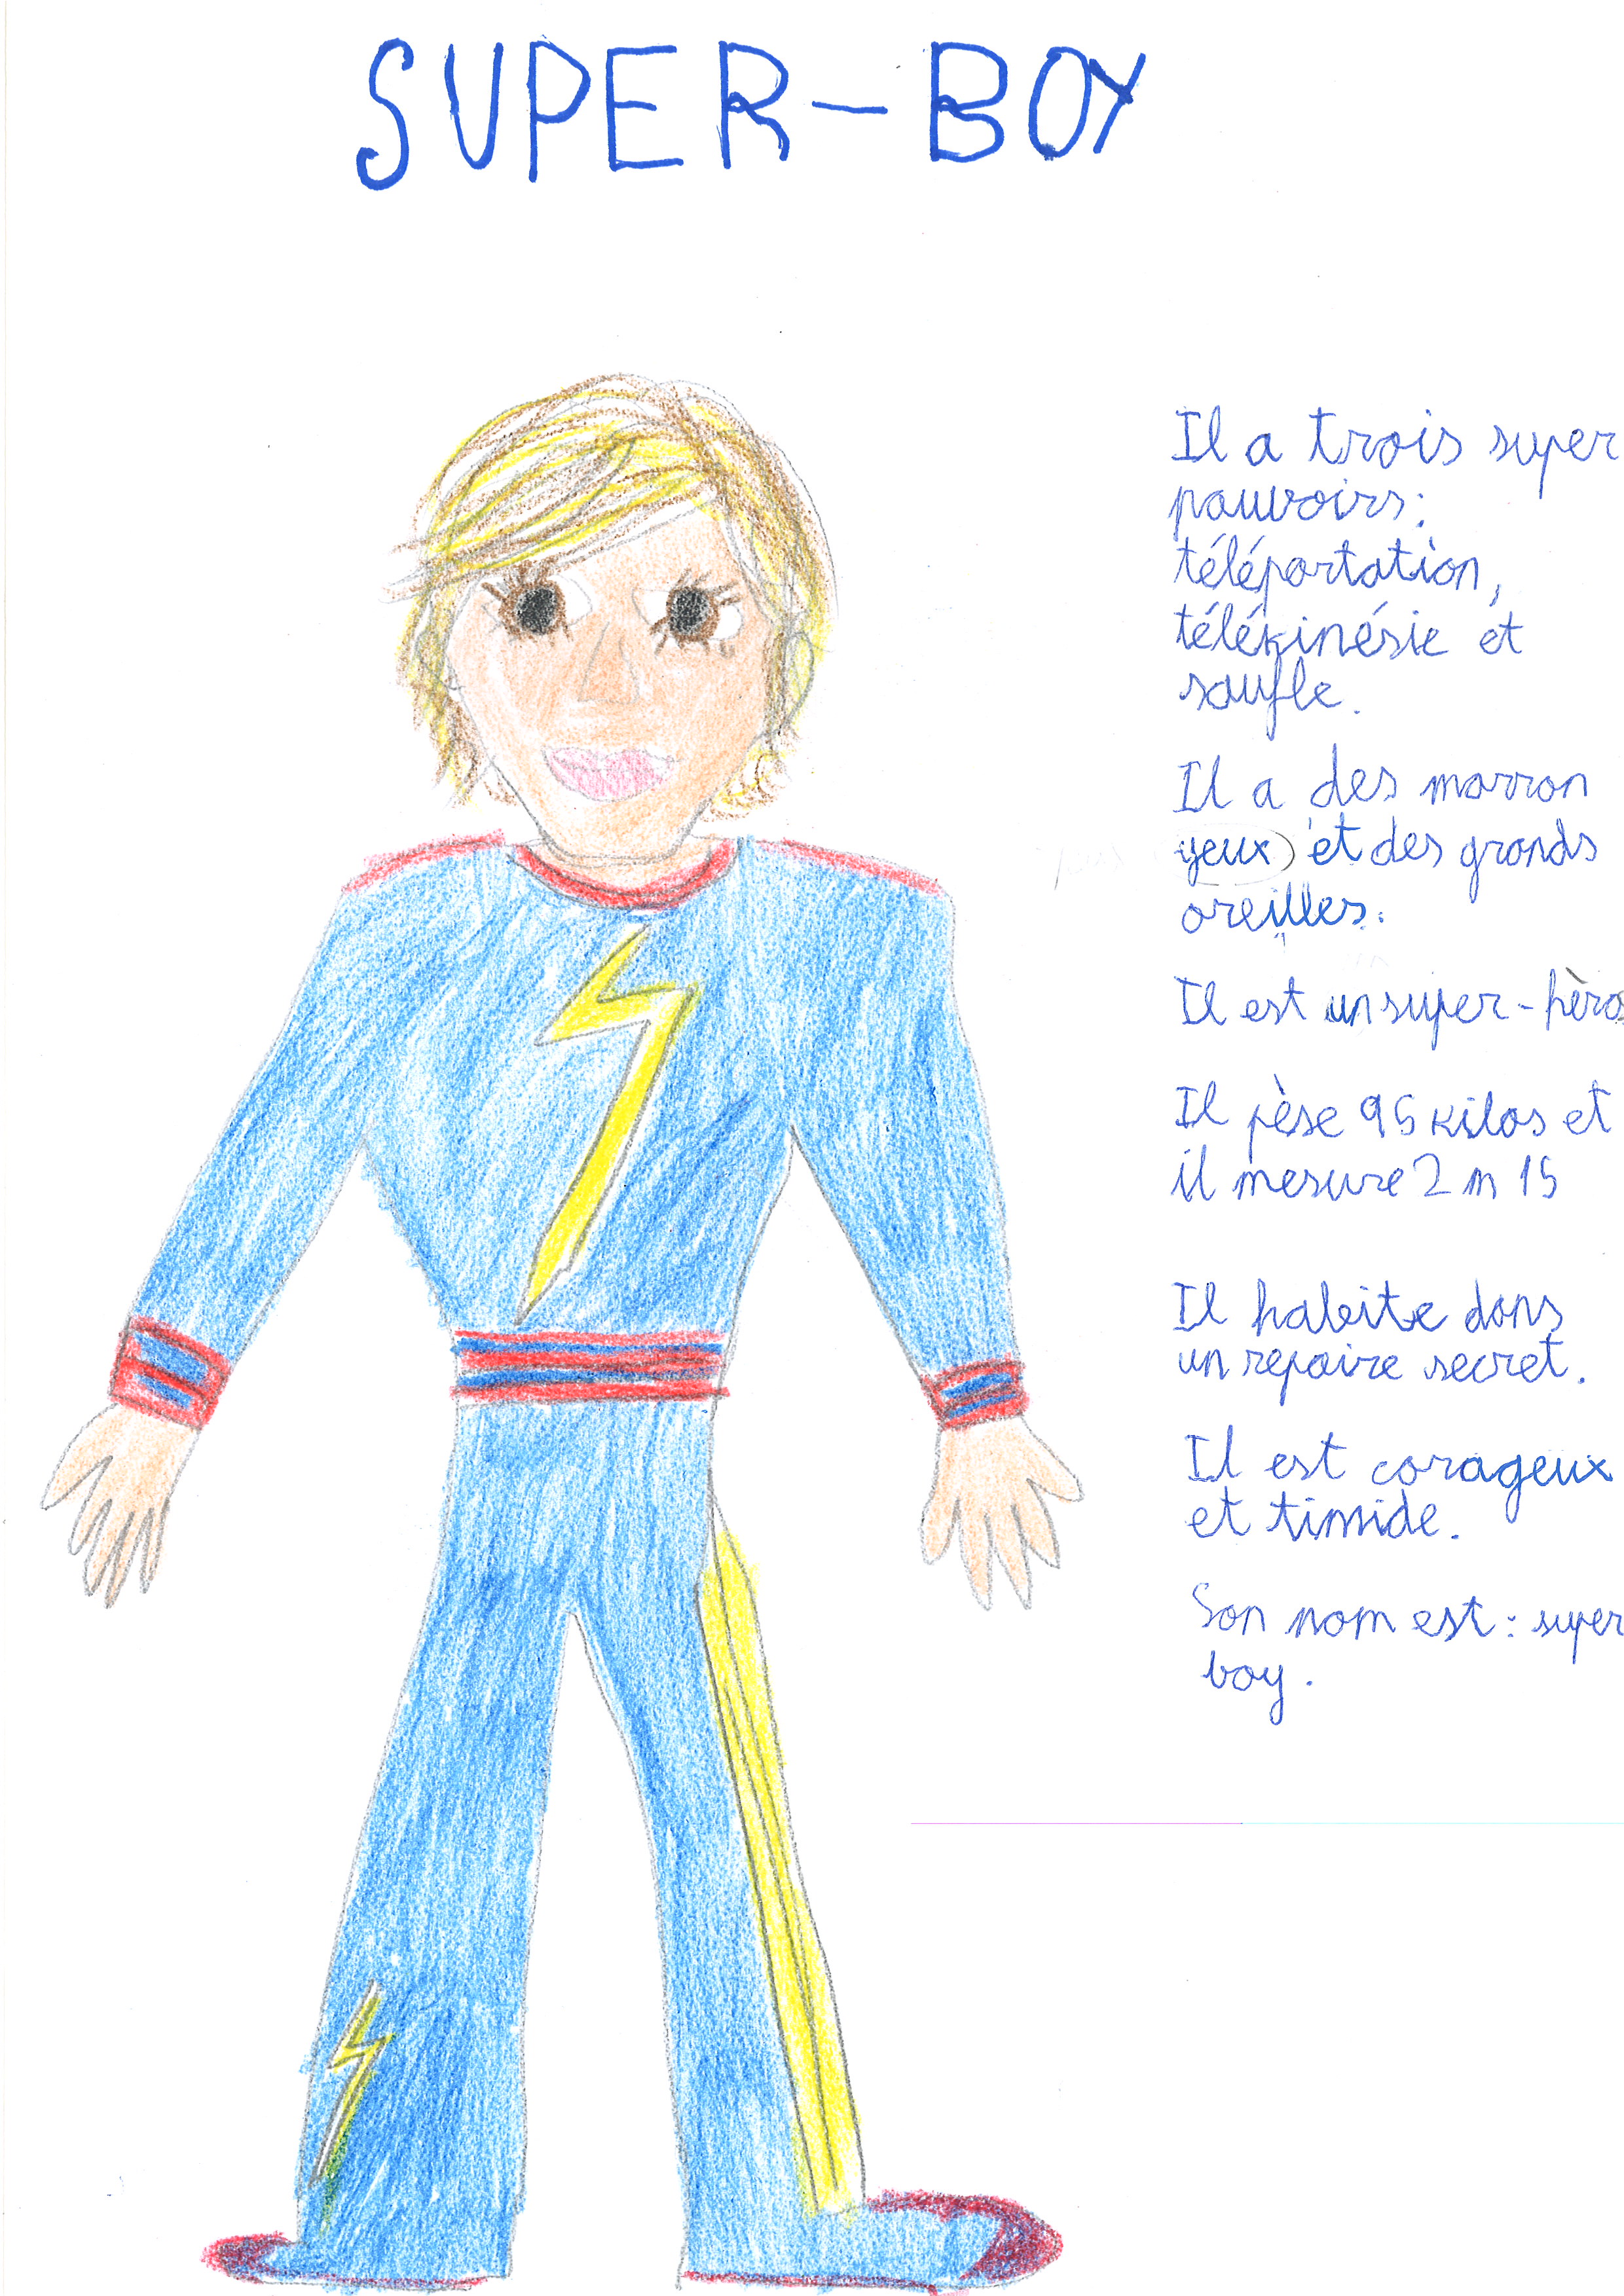 SUPER-BOY
Il a trois super
pouvoirs:
téléportation,
télékinésie et
soufle.
Il a des marron
yeux et des grands
oreilles.
Il est un super-hèros
Il pèse 95 kilos et
il mesure 2 m 15
Il habite dans
un repaire secret.
Il est corageux
et timide.
Son nom est: super
boy.